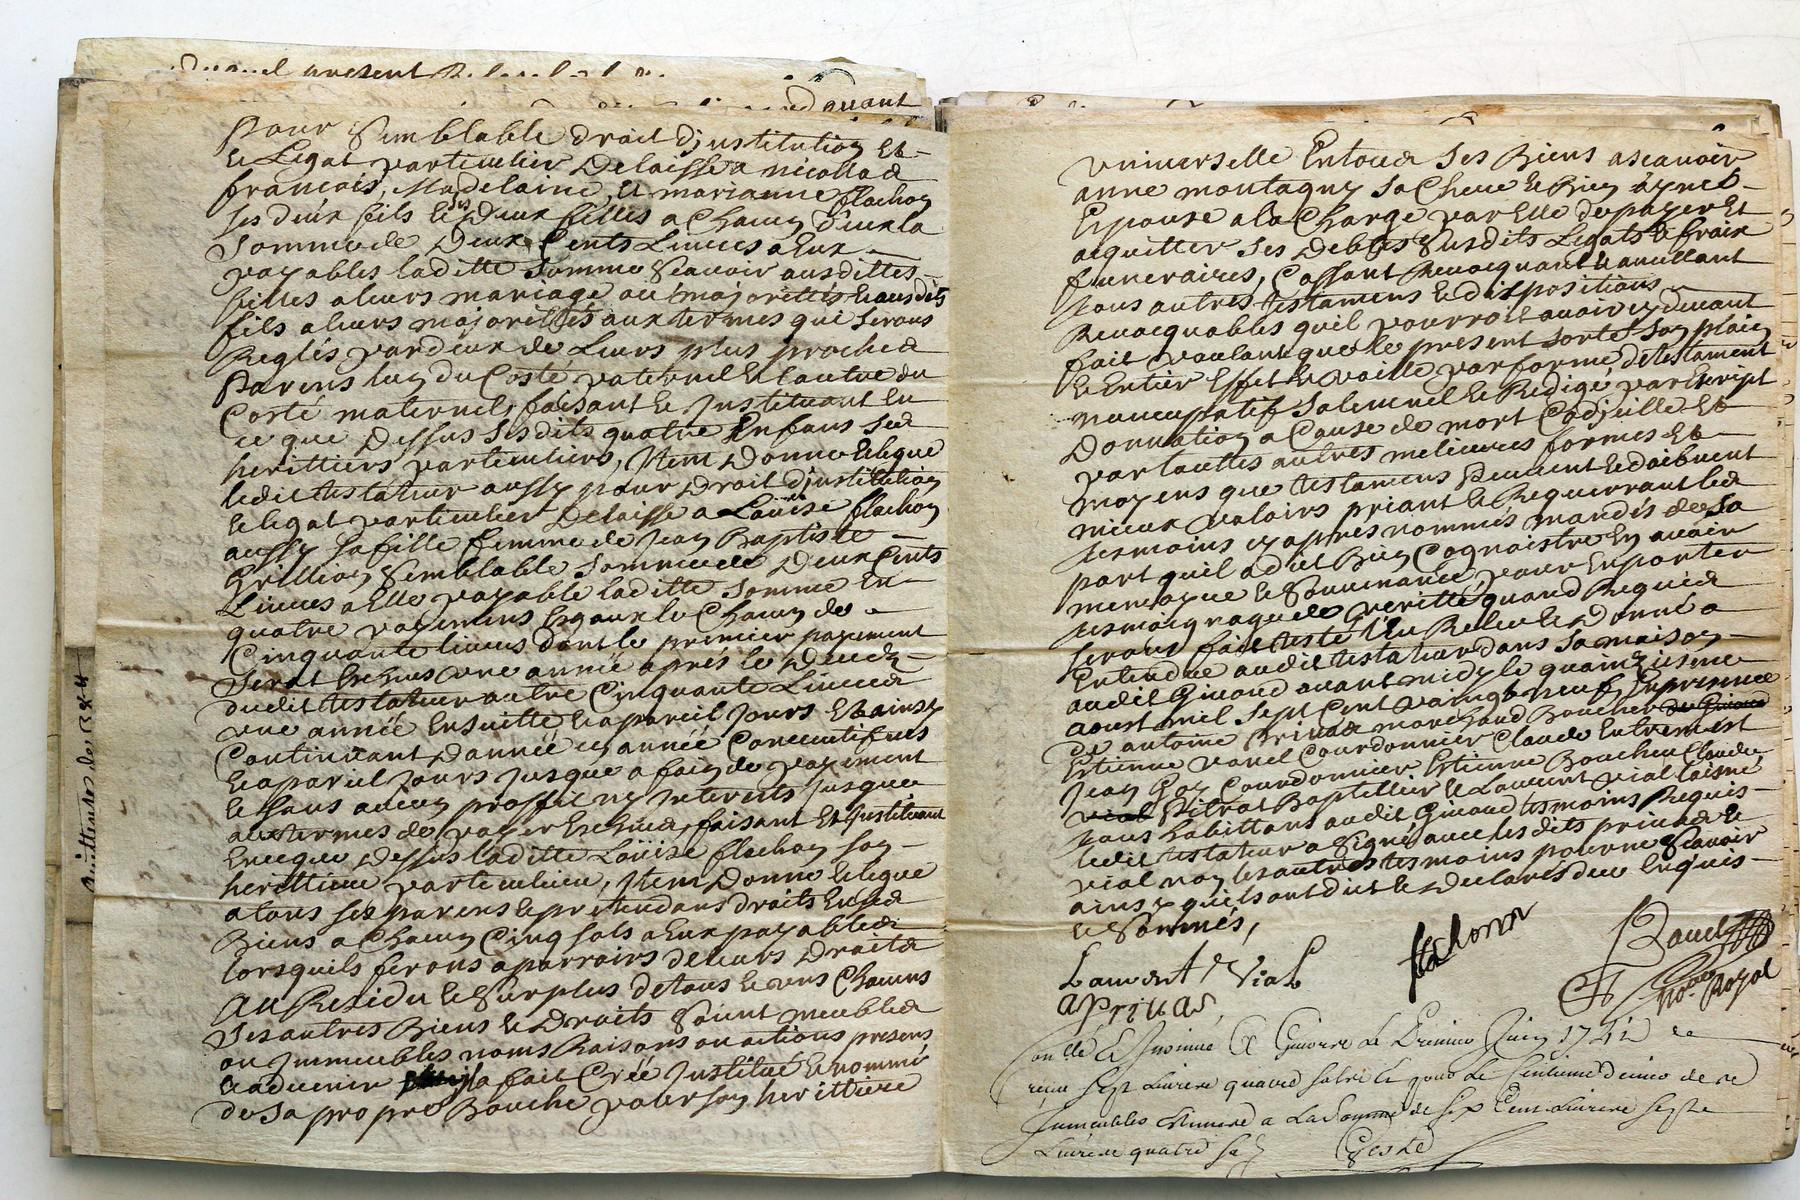 Duquel present
quant
Pour Semblable droit d'jnstitution Et
Le Legat particulier Delaissé a nicollas
francois, Madelaine, et marianne flachon
ses deux fils et ses Deux filles a Chacun d'eux la
Somme de Deux Cents Liures a Eux
payables laditte Somme Scauoir ausdittes
filles a leurs mariage ou majorittés & ausdits
fils a leurs majorittés aux termes qui Serons
Reglés par deux de Leurs plus proches
Parens luy du Costé paternel Et lautre du
Costé maternel, faisant Et Jnstituant En
ce que Dessus Sesdits quatre Enfans Ses
herittiers particuliers, Jtem Donne & legue
ledit testateur aussy pour Droit d'jnstitution
& legat particulier Delaisse a Loüise flachon
aussy Sa fille femme de Jean Baptiste
Grillion Semblable Somme de Deux Cents
Liures a Elle payable laditte Somme En
quatre payemens Esgaux de Chacun de
Cinquante liures dont le premier payement
Serat Escheus une année aprés le Decedz
dudit testateur autre Cinquante Liures
une année Ensuitte & a pareil Jours Et ainsy
Continuant Dannée en année Consecutifues
& a pareil Jours Jusque a fain de payement
le Sans aucun proffit ny Jnterests Jusque
aux termes de payer Escheus, faisant Et Jnstituant
Enceque Dessus laditte Loüise flachon Son
herittiere particuliere, Jtem Donne & legue
a tous ses parens & pretendans droits En Ses
Biens a Chacun Cinq sols a Eux payables
lorsquils ferons apparroirs de leurs Droits
Au Residu & Surplus de tous & uns Chacuns
Ses autres Biens & Droits Soint meubles
ou Jmmeubles noms Raisons ou actions presens
& aduenir a fait Créé Jnstitué & nommé
de Sa propre Bouche pour Son herittiere
vniuerselle En tous Ses Biens ascauoir
anne montagny Sa Chere & Bien aymée
Epouse a la Charge par Elle de payer Et
acquitter Ses Debtes Susdits Legats & fraix
funeraires, Cassant Reuocquant & anullant
tous autres testamens & dispositions
Reuocquables quil pourroit auoir cy deuant
fait voulant que le present Sorte Son plain
& Entier Effet & vaille par forme de testament
nuncupatif Solemnel & Redigé par Escript
Donnation a Cause de mort Codjcille Et
par touttes autres melieures formes Et
moyens que testamens Peuuent & doibuent
mieux valoirs priant & Requerrant les
tesmoins cy apres nommés mandés de Sa
part quil a dit Bien Cognoistre En auoir
memoyre & Souuenance pour En porter
tesmoignage de veritté quand Requis
Serons fait testé Leu Releu & Donné a
Entendre audit testateur dans Sa maison
audit Giuord auant midy le quainziesme
aoust mil Sept Cent vaingt neuf, En presence
de antoine Priuas marchand Boucher de Giuord
Estienne vanel Courdonnier Claude Entremont
Jean Goy Courdonnier Estienne Boucheu Claude
vial Pitrat Baptellier & Laurent vial laisné
tous habittans audit Giuord tesmoins Requis
ledit testateur a Signé auec lesdits priuas &
vial non les autres tesmoins pour ne Scauoir
ainsy quils ont dit & Declarés deu Enquis
& Sommés,
Laurent Vial
flachonn
a Priuas
Royal
Con.lé Et Jnsinué A Giuorse Le Premier Juin 1741 de
reçus Sept Liures quatre sols le pour Le Centieme Denier de ce
Jmmeubles Estimes a La Somme de Six Cent Liures Sept
Liures quatre
quittance de 1384